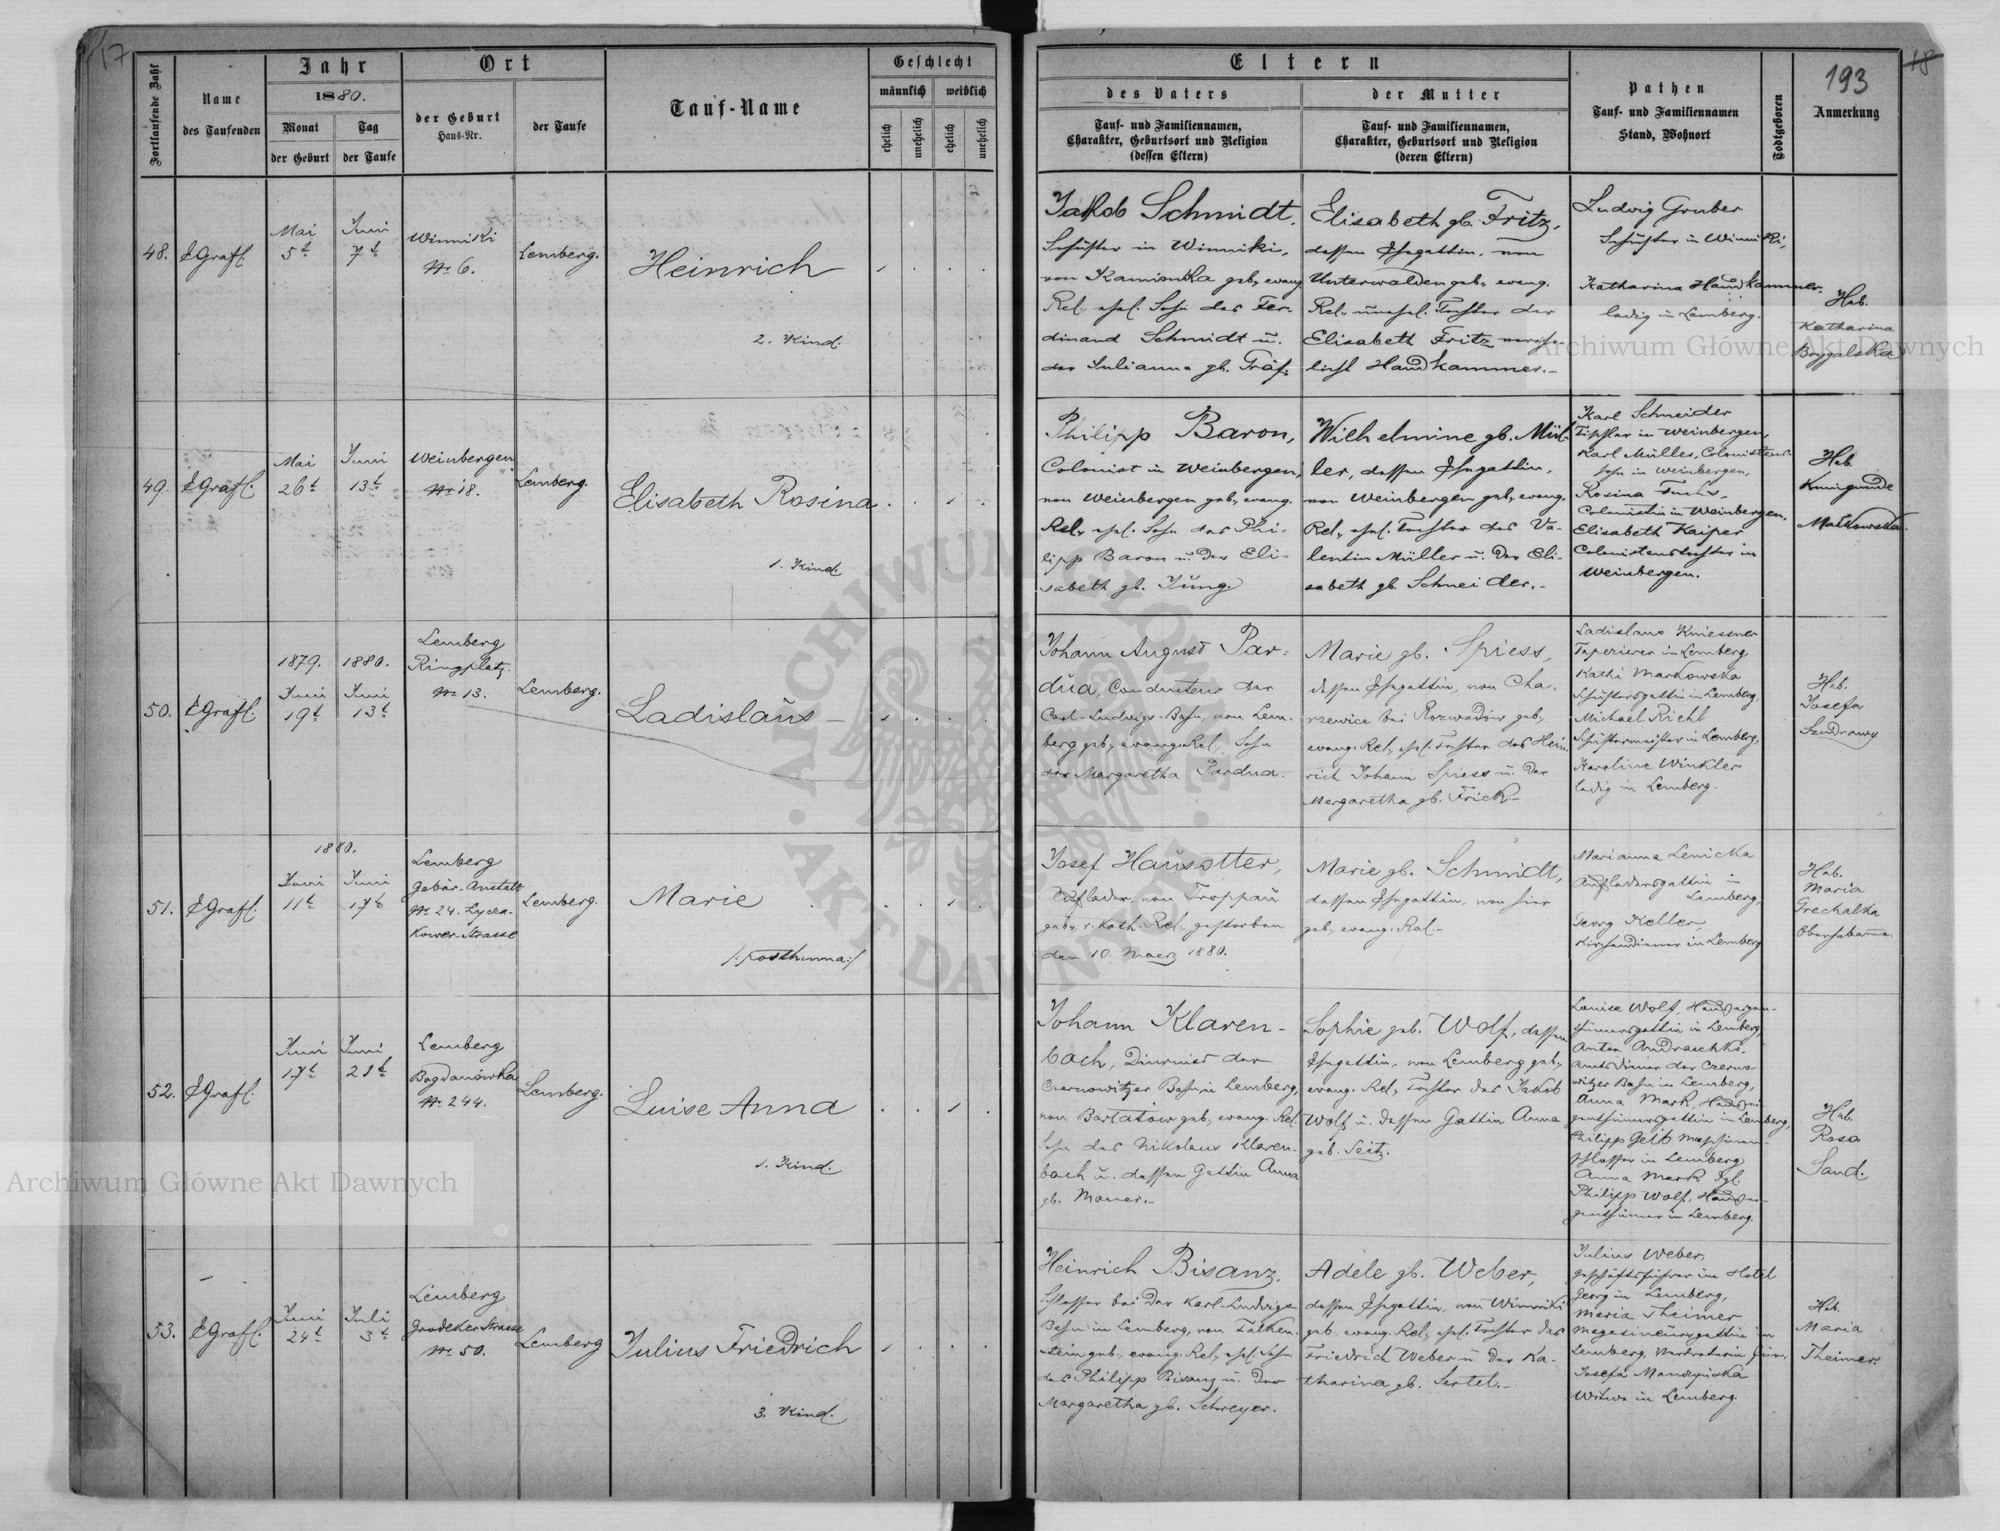 17
Fortlaufende Zahl
Name
des Taufenden
Jahr
1880.
Monat
Tag
der Geburt
der Taufe
Ort
der Geburt
Haus-Nr.
der Taufe
Tauf-Name
Geschlecht
männlich
weiblich
ehelich
unehelich
ehelich
unehelich
48.
Mai
5t
Juni
7t
Winniki
No 6.
Lemberg.
Heinrich
2. Kind.
49.
Mai
26t
Juni
13t
Weinbergen
No 18.
Lemberg.
Elisabeth Rosina
1. Kind.
50.
1879.
Juni
19t
1880.
Juni
13t
Lemberg
Ringplatz.
No 13.
Lemberg.
Ladislaus
51.
1880.
Juni
11t
Juni
17t
Lemberg
Gebär-Anstalt
No 24. Lycza-
kower-Strasse
Lemberg.
Marie
/:posthuma:/
52.
Juni
17t
Juni
21t
Lemberg
Bogdanówka
No 244.
Lemberg.
Luise Anna
1. Kind.
53.
Juni
24t
Juli
3t
Lemberg
Grodeker Strasse
No 50.
Lemberg
Julius Friedrich
3. Kind.
18
Eltern
des Vaters
Tauf- und Familiennamen,
Charakter, Geburtsort und Religion
(dessen Eltern)
der Mutter
Tauf- und Familiennamen,
Charakter, Geburtsort und Religion
(deren Eltern)
Pathen
Tauf- und Familiennamen
Stand, Wohnort
Todtgeboren
193
Anmerkung
Jakob Schmidt,
Schuster in Winniki,
von Kamionka geb., evang.
Rel. ehel. Sohn des Fer-
dinand Schmidt u.
der Julianna gb. Graf.
Elisabeth gb. Fritz,
dessen Ehegattin, von
Unterwalden geb., evang.
Rel., unehel. Tochter der
Elisabeth Fritz verehe-
licht Handkammer.-
Ludwig Gruber
Schuster in Winniki,
Katharina Handkammer
ledig in Lemberg.
Heb.
Katharina
Philipp Baron,
Colonist in Weinbergen,
von Weinbergen geb., evang.
Rel., ehel. Sohn des Phi-
lipp Baron u. der Eli-
sabeth gb. Jung.
Wilhelmine gb. Mül-
ler, dessen Ehegattin,
von Weinbergen geb., evang.
Rel., ehel. Tochter des Va-
lentin Müller u. der Eli-
sabeth gb. Schneider.-
Karl Schneider
Tischler in Weinbergen,
Karl Müller, Colonistens-
sohn in Weinbergen,
Rosina Fuchs,
Colonistin in Weinbergen,
Elisabeth Kaiper
Colonistenstochter in
Weinbergen.
Heb.
Kunigunde
Malkowska.
Johann August Par-
dua, Conducteur der
Carl-Ludwigs-Bahn, von Lem-
berg geb., evang. Rel., Sohn
der Margaretha Pardua.
Marie gb. Spiess,
dessen Ehegattin, von Cha-
rzewice bei Rozwadów geb.,
evang. Rel., ehel. Tochter des Hein-
rich Johann Spiess u. der
Margaretha gb. Frick.-
Ladislaus Kniessner
Tapezierer in Lemberg
Kathi Markowska
Schustersgattin in Lemberg.
Michael Richl
Schustermeister in Lemberg,
Karoline Winkler
ledig in Lemberg.
Heb.
Josefa
Josef Hausotter,
Aufleder, von Troppau
geb., r. kath. Rel., gestorben
den 10. Maerz 1880.
Marie gb. Schmidt,
dessen Ehegattin, von hier
geb., evang. Rel.-
Marianna Lenicka
Aufladersgattin in
Lemberg,
Georg Keller,
Kirchendiener in Lemberg
Heb.
Maria
Grechalka
Oberhebamme.
Johann Klaren-
bach, Diurnist der
Czernowitzer Bahn in Lemberg,
von Bartatów geb., evang. Rel.
Sohn des Nikolaus Klaren-
bach u. dessen Gattin Anna
gb. Mauer.-
Sophie geb. Wolf, dessen
Ehegattin, von Lemberg geb.,
evang. Rel., Tochter des Jakob
Wolf u. dessen Gattin Anna
geb. Seitz.
Louise Wolf, Hauseigen-
thümersgattin in Lemberg,
Anton Andraschko,
Amtsdiener der Czerno-
witzer Bahn in Lemberg,
Anna Mark, Hausei-
genthümersgattin in Lemberg,
Philipp Geib Maschinen-
schlosser in Lemberg
Anna Mark dgl.
Philipp Wolf, Hausei-
genthümer in Lemberg.
Heb.
Rosa
Sand.
Heinrich Bisanz,
Schlosser bei der Karl-Ludwigs-
Bahn in Lemberg, von Falken-
stein geb., evang. Rel., ehel. Sohn
des Philipp Bisanz u. der
Margaretha gb. Schreyer.
Adele gb. Weber,
dessen Ehegattin, von Winniki
geb., evang. Rel., ehel. Tochter des
Friedrich Weber u. der Ka-
tharina gb. Sertel.-
Julius Weber,
Geschäftsführer im Hotel
Georg in Lemberg,
Maria Theimer
Magazineursgattin in
Josefa
Witwe in Lemberg.
Heb.
Maria
Theimer.
Archiwum Główne Akt Dawnych
Archiwum Główne Akt Dawnych
ARCHIWUM GŁÓWNE
AKT DAWNYCH